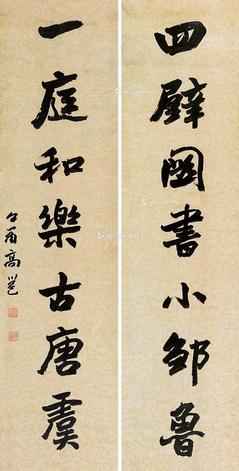 四壁圖書小鄒魯
一庭和樂古唐虞
高邕